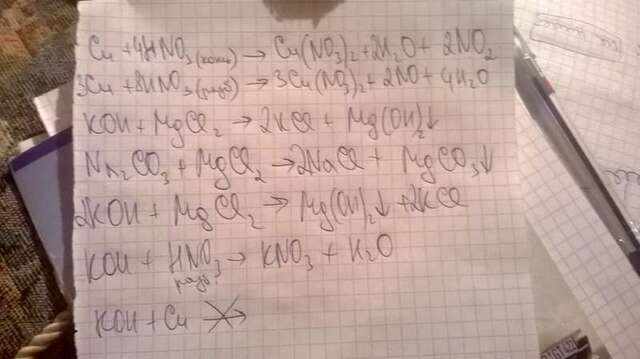 Cu + 4HNO₃ (конц) → Cu(NO₃)₂ + 2H₂O + 2NO₂
3Cu + 8HNO₃ (разб) → 3Cu(NO₃)₂ + 2NO + 4H₂O
KOH + MgCl₂ → 2KCl + Mg(OH)₂↓
Na₂CO₃ + MgCl₂ → 2NaCl + MgCO₃↓
2KOH + MgCl₂ → Mg(OH)₂↓ + 2KCl
KOH + HNO₃ → KNO₃ + H₂O
разб.
KOH + Cu